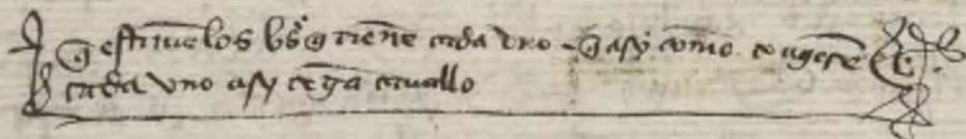 q estimē los bs q tiene cada vno q asy como
cada vno asy tega cauallo